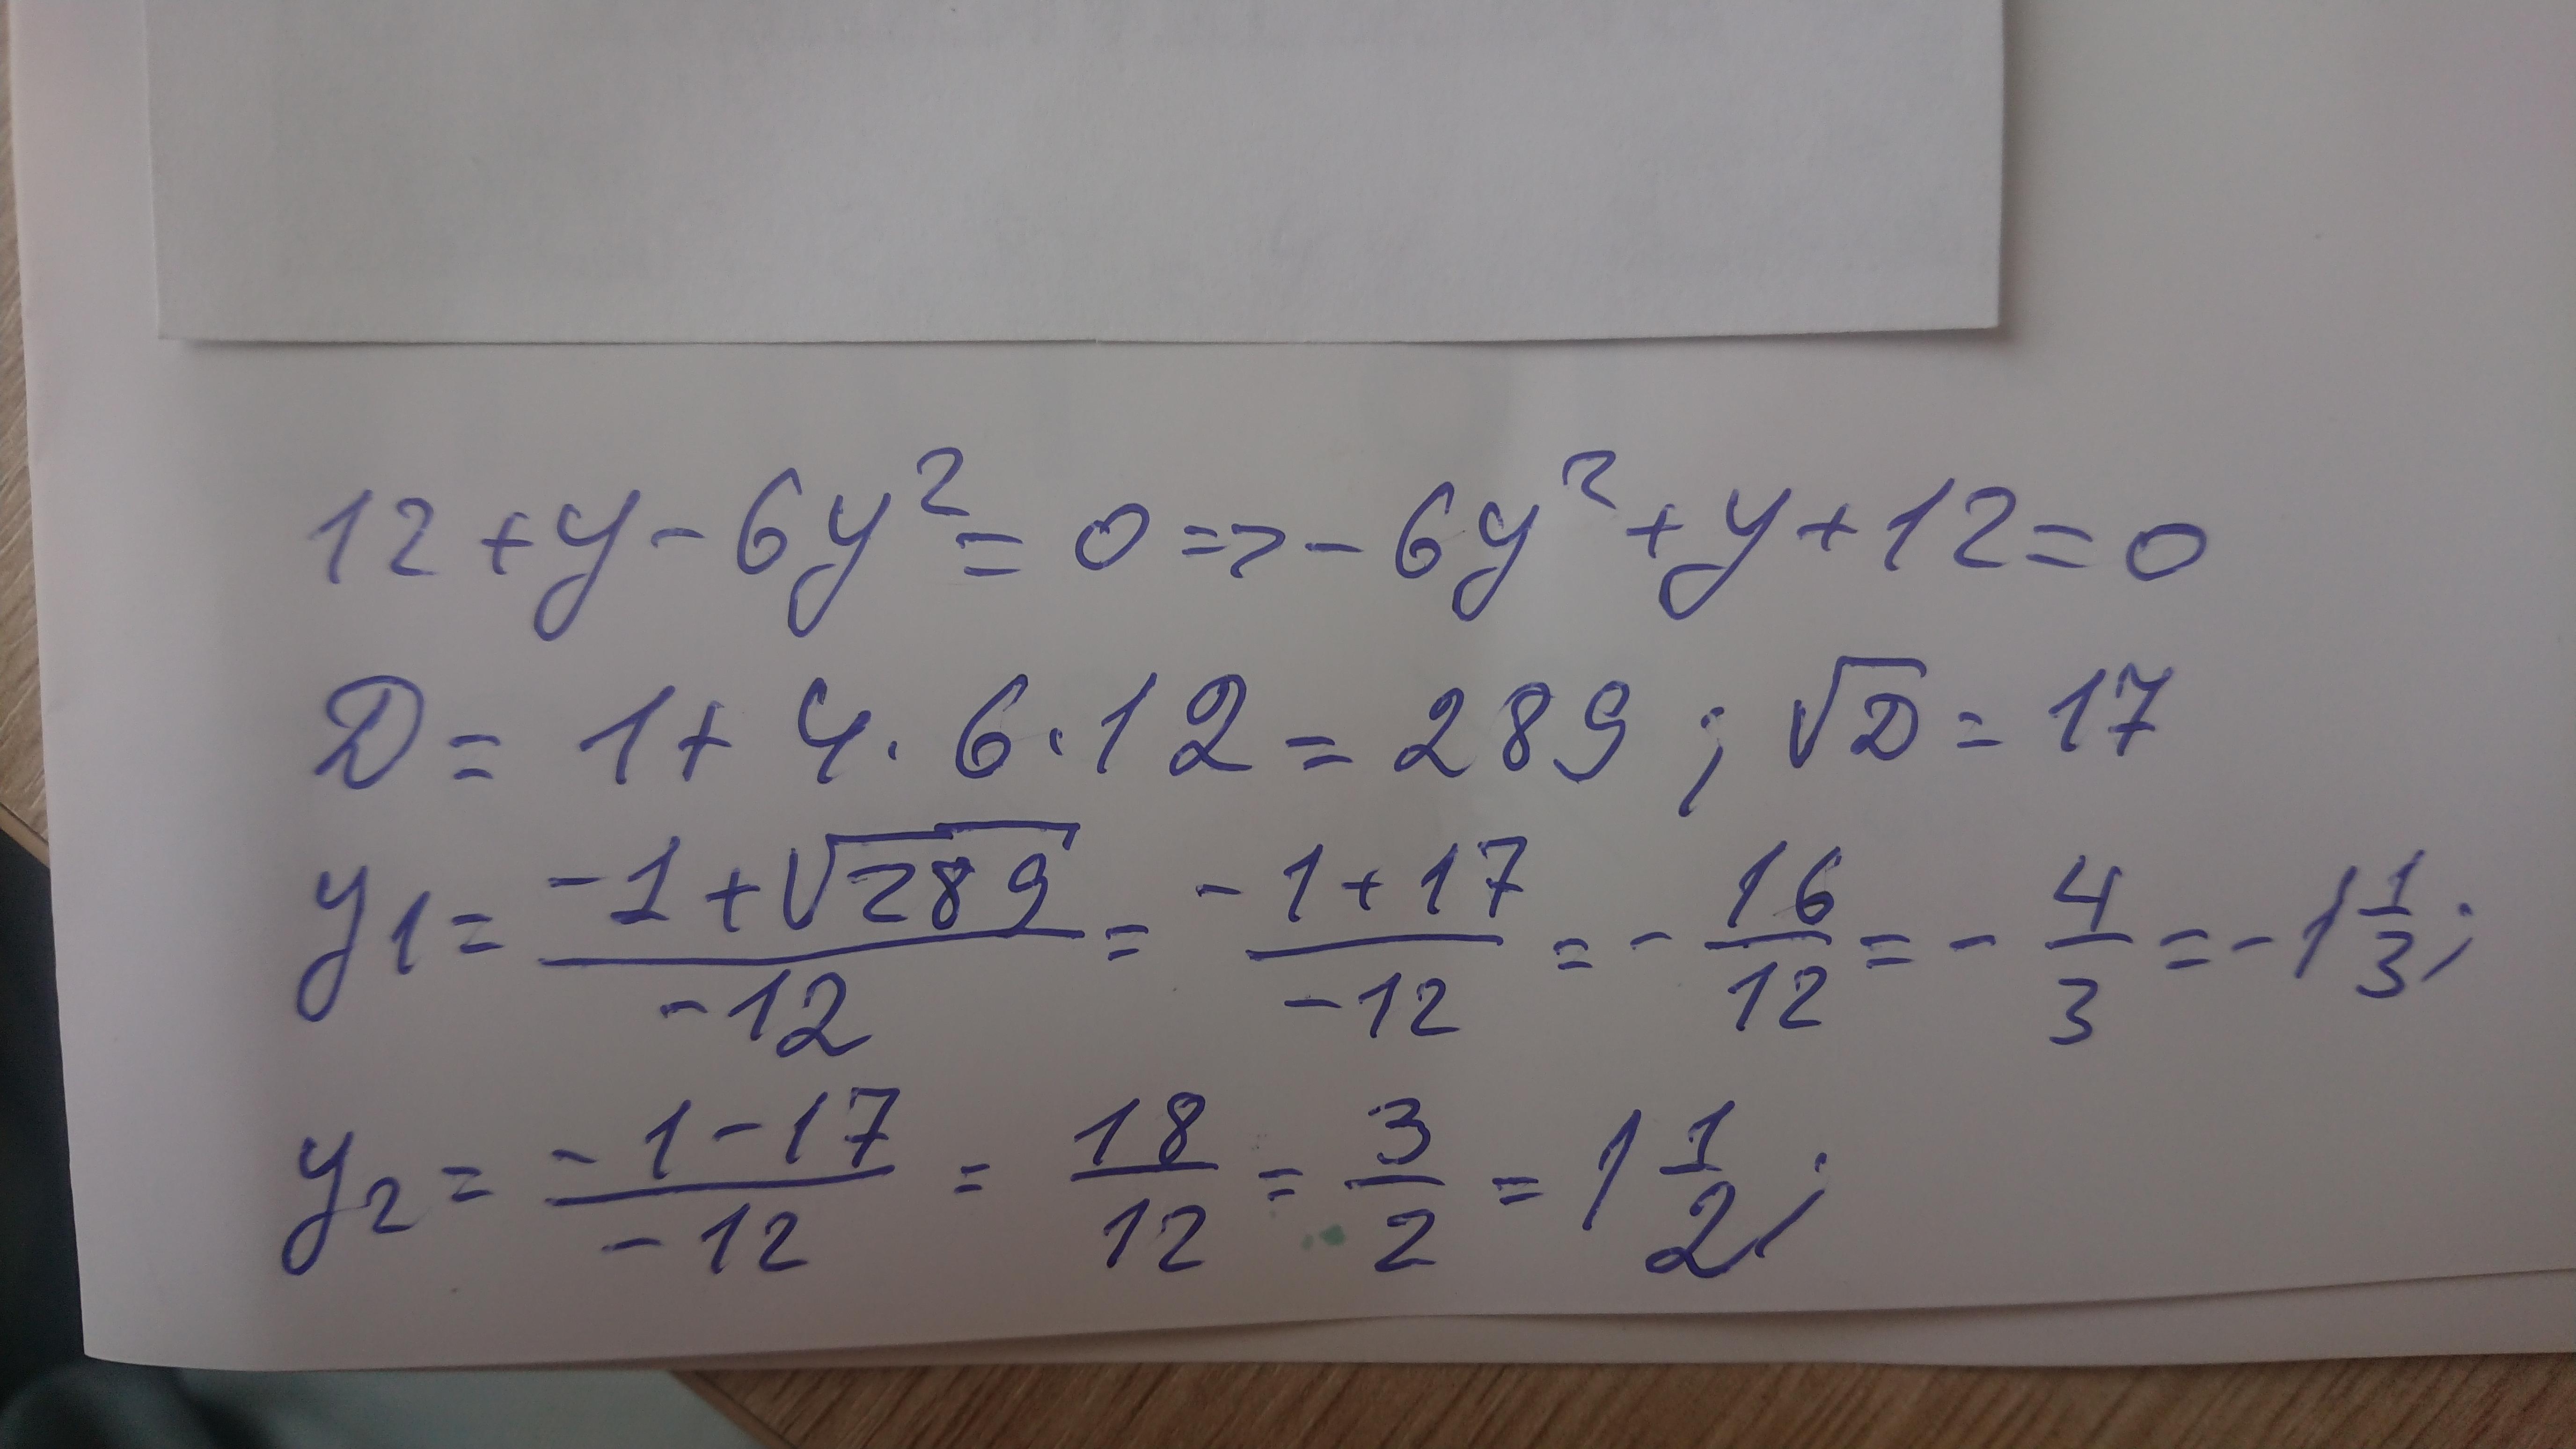 12 + y - 6y² = 0 => - 6y² + y + 12 = 0
D = 1 + 4 · 6 · 12 = 289 ; √D = 17
y₁ = (-1 + √289)/(-12) = (-1 + 17)/(-12) = - 16/12 = - 4/3 = - 1 1/3 ;
y₂ = (-1 - 17)/(-12) = 18/12 = 3/2 = 1 1/2 ;